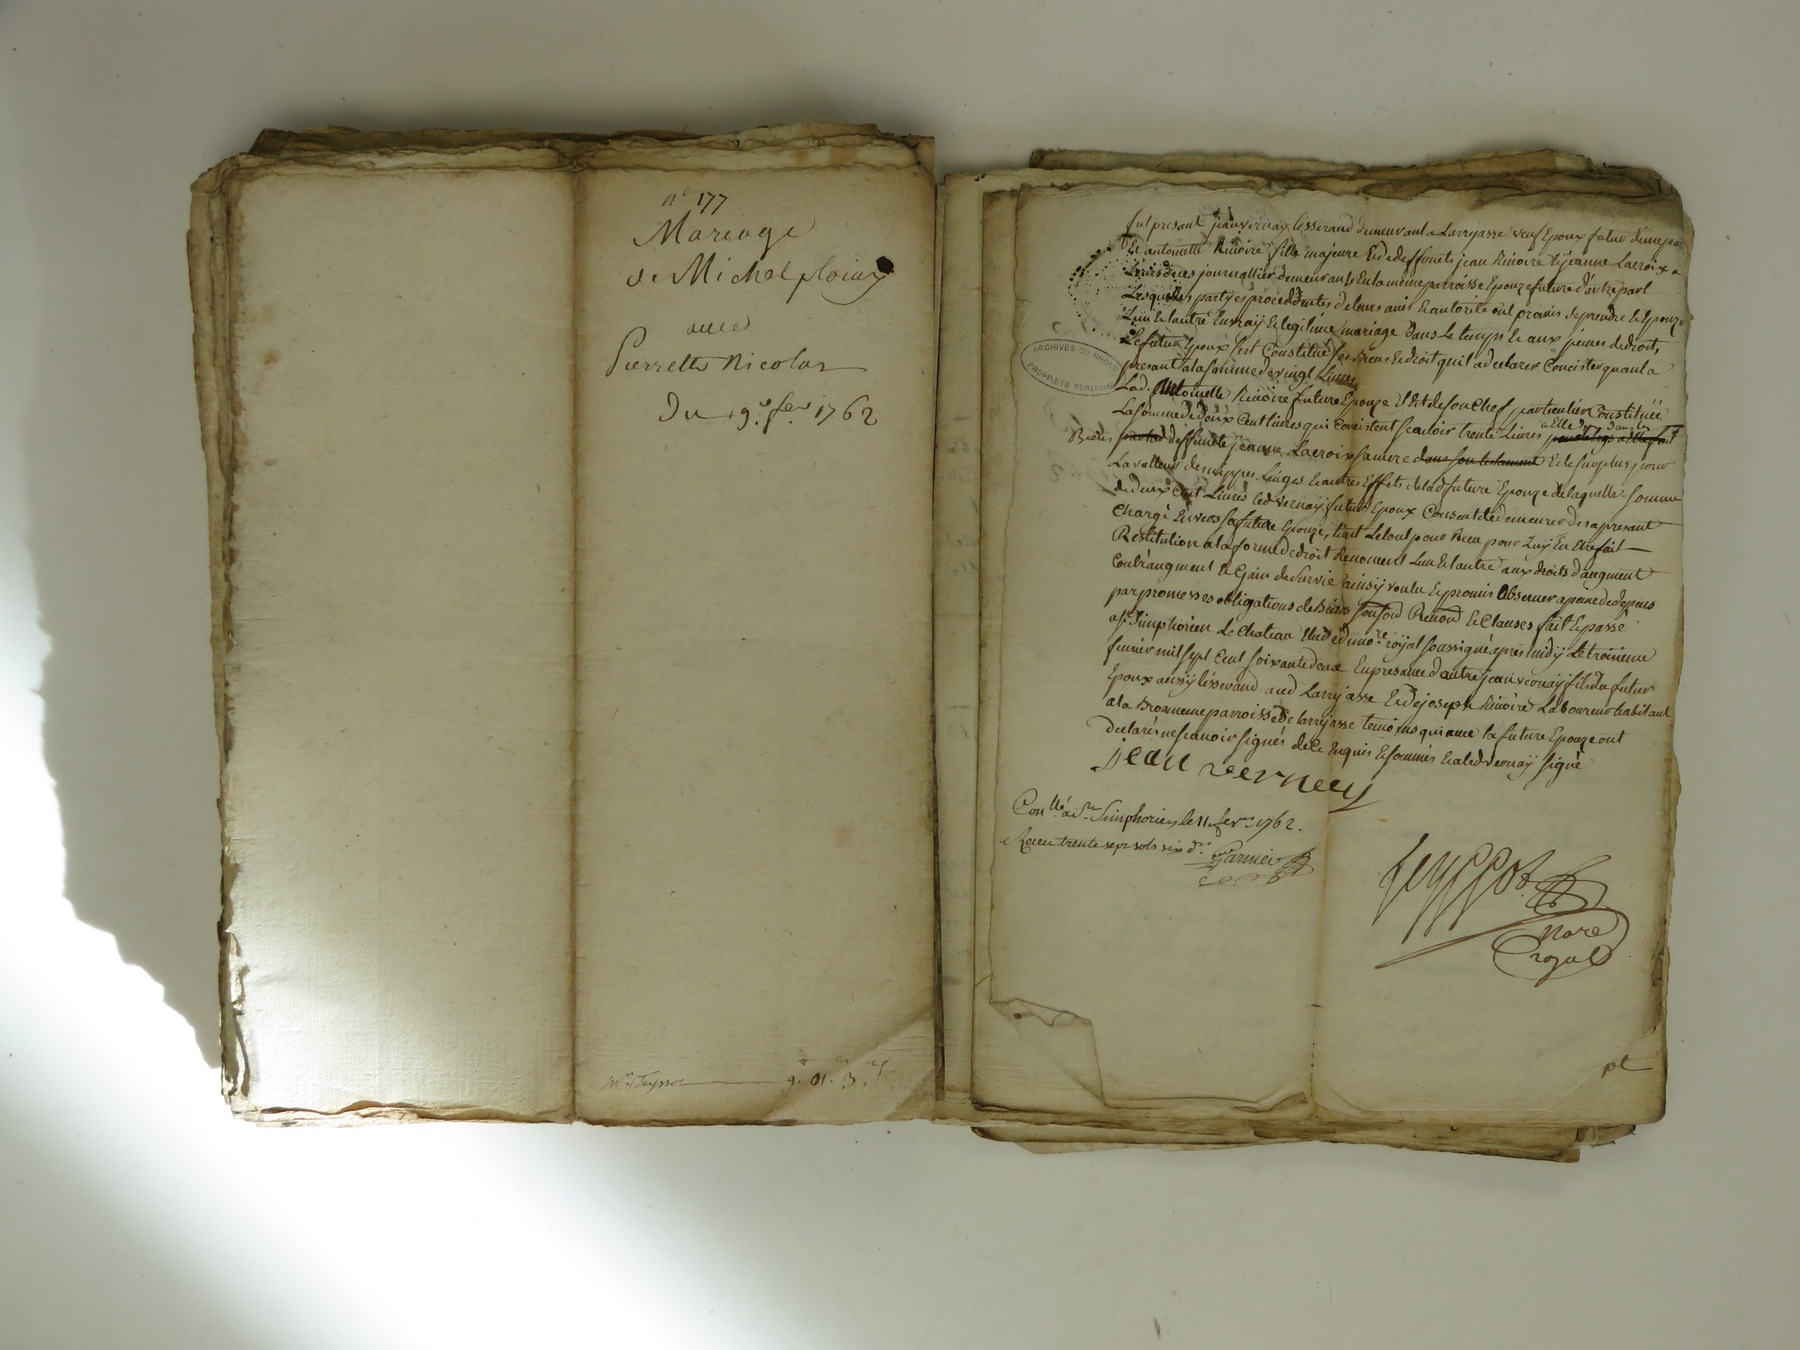 n° 177
Mariage
de Michel ploivy
avec
Pierrette Nicolas
Du 19e fer 1762
Me Feyssot
9. 01. 3.
fut presant jean vernay tisserand demeurant a Larrajasse veuf Epoux futur d'une part
Et antoinette Rivoire fille majeure Et de deffunts jean Rivoire Et jeanne Lacroix
journallier demeurante En la meme parroisse Epouze future d'autre part
Lesquelles partyes proceddantes de leurs avis Et autorité ont promis se prendre Et Epouzer
L'un Et lautre En vray Et legitime mariage dans Le temps Et aux peines de droit,
Le futur Epoux s'est Constitué ses Biens Et droit qu'il a declarer Concister quant a
presant a la somme de vingt Livres
Lad. Antoinette Rivoire future Epouze S'Est de son Chef particulier Constituée
La somme de deux Cent livres qui Concistent scavoir trente Livres a Elle dans les
Biens deffunte jeanne Lacroix sa mere dans son testament Et de surplus pour
La valleur de nippes Linges Et autres Effets de lad future Epouze de laquelle somme
de deux Cent Livres led vernay futur Epoux Consent de demeurer des apresant
Chargé Envers sa future Epouze, tient Le tout pour Receu pour Luy En Etre fait
Restitution a la forme de droit Renoncent L'un Et lautre aux droits d'augment
Contraugment Et Gain de Survie ainsy voulu Et promis Observer a peine de depens
par promesses obligations de Biens Renon Et Clauses fait Et passé
a St Simphorien Le Chateau Etude du nore royal soussigné apres midy Le troisieme
fevrier mil sept Cent soixante deux En presance d'autre jean vernay fils du futur
Epoux aussy tisserand aud Larrajasse Et de joseph Rivoire Laboureur habitant
a la meme parroisse de larrajasse temoins qui avec la future Epouze ont
declarés ne scavoir signés de ce Enquis Et sommés Et a led vernay signé
jean verney
ARCHIVES DU RHONE
PROPRIÉTÉ PUBLIQUE
Conllé a St Simphorien le 11 fevr 1762.
Receu trente sept sols six drs
Garnier
feyssot
nore
royal